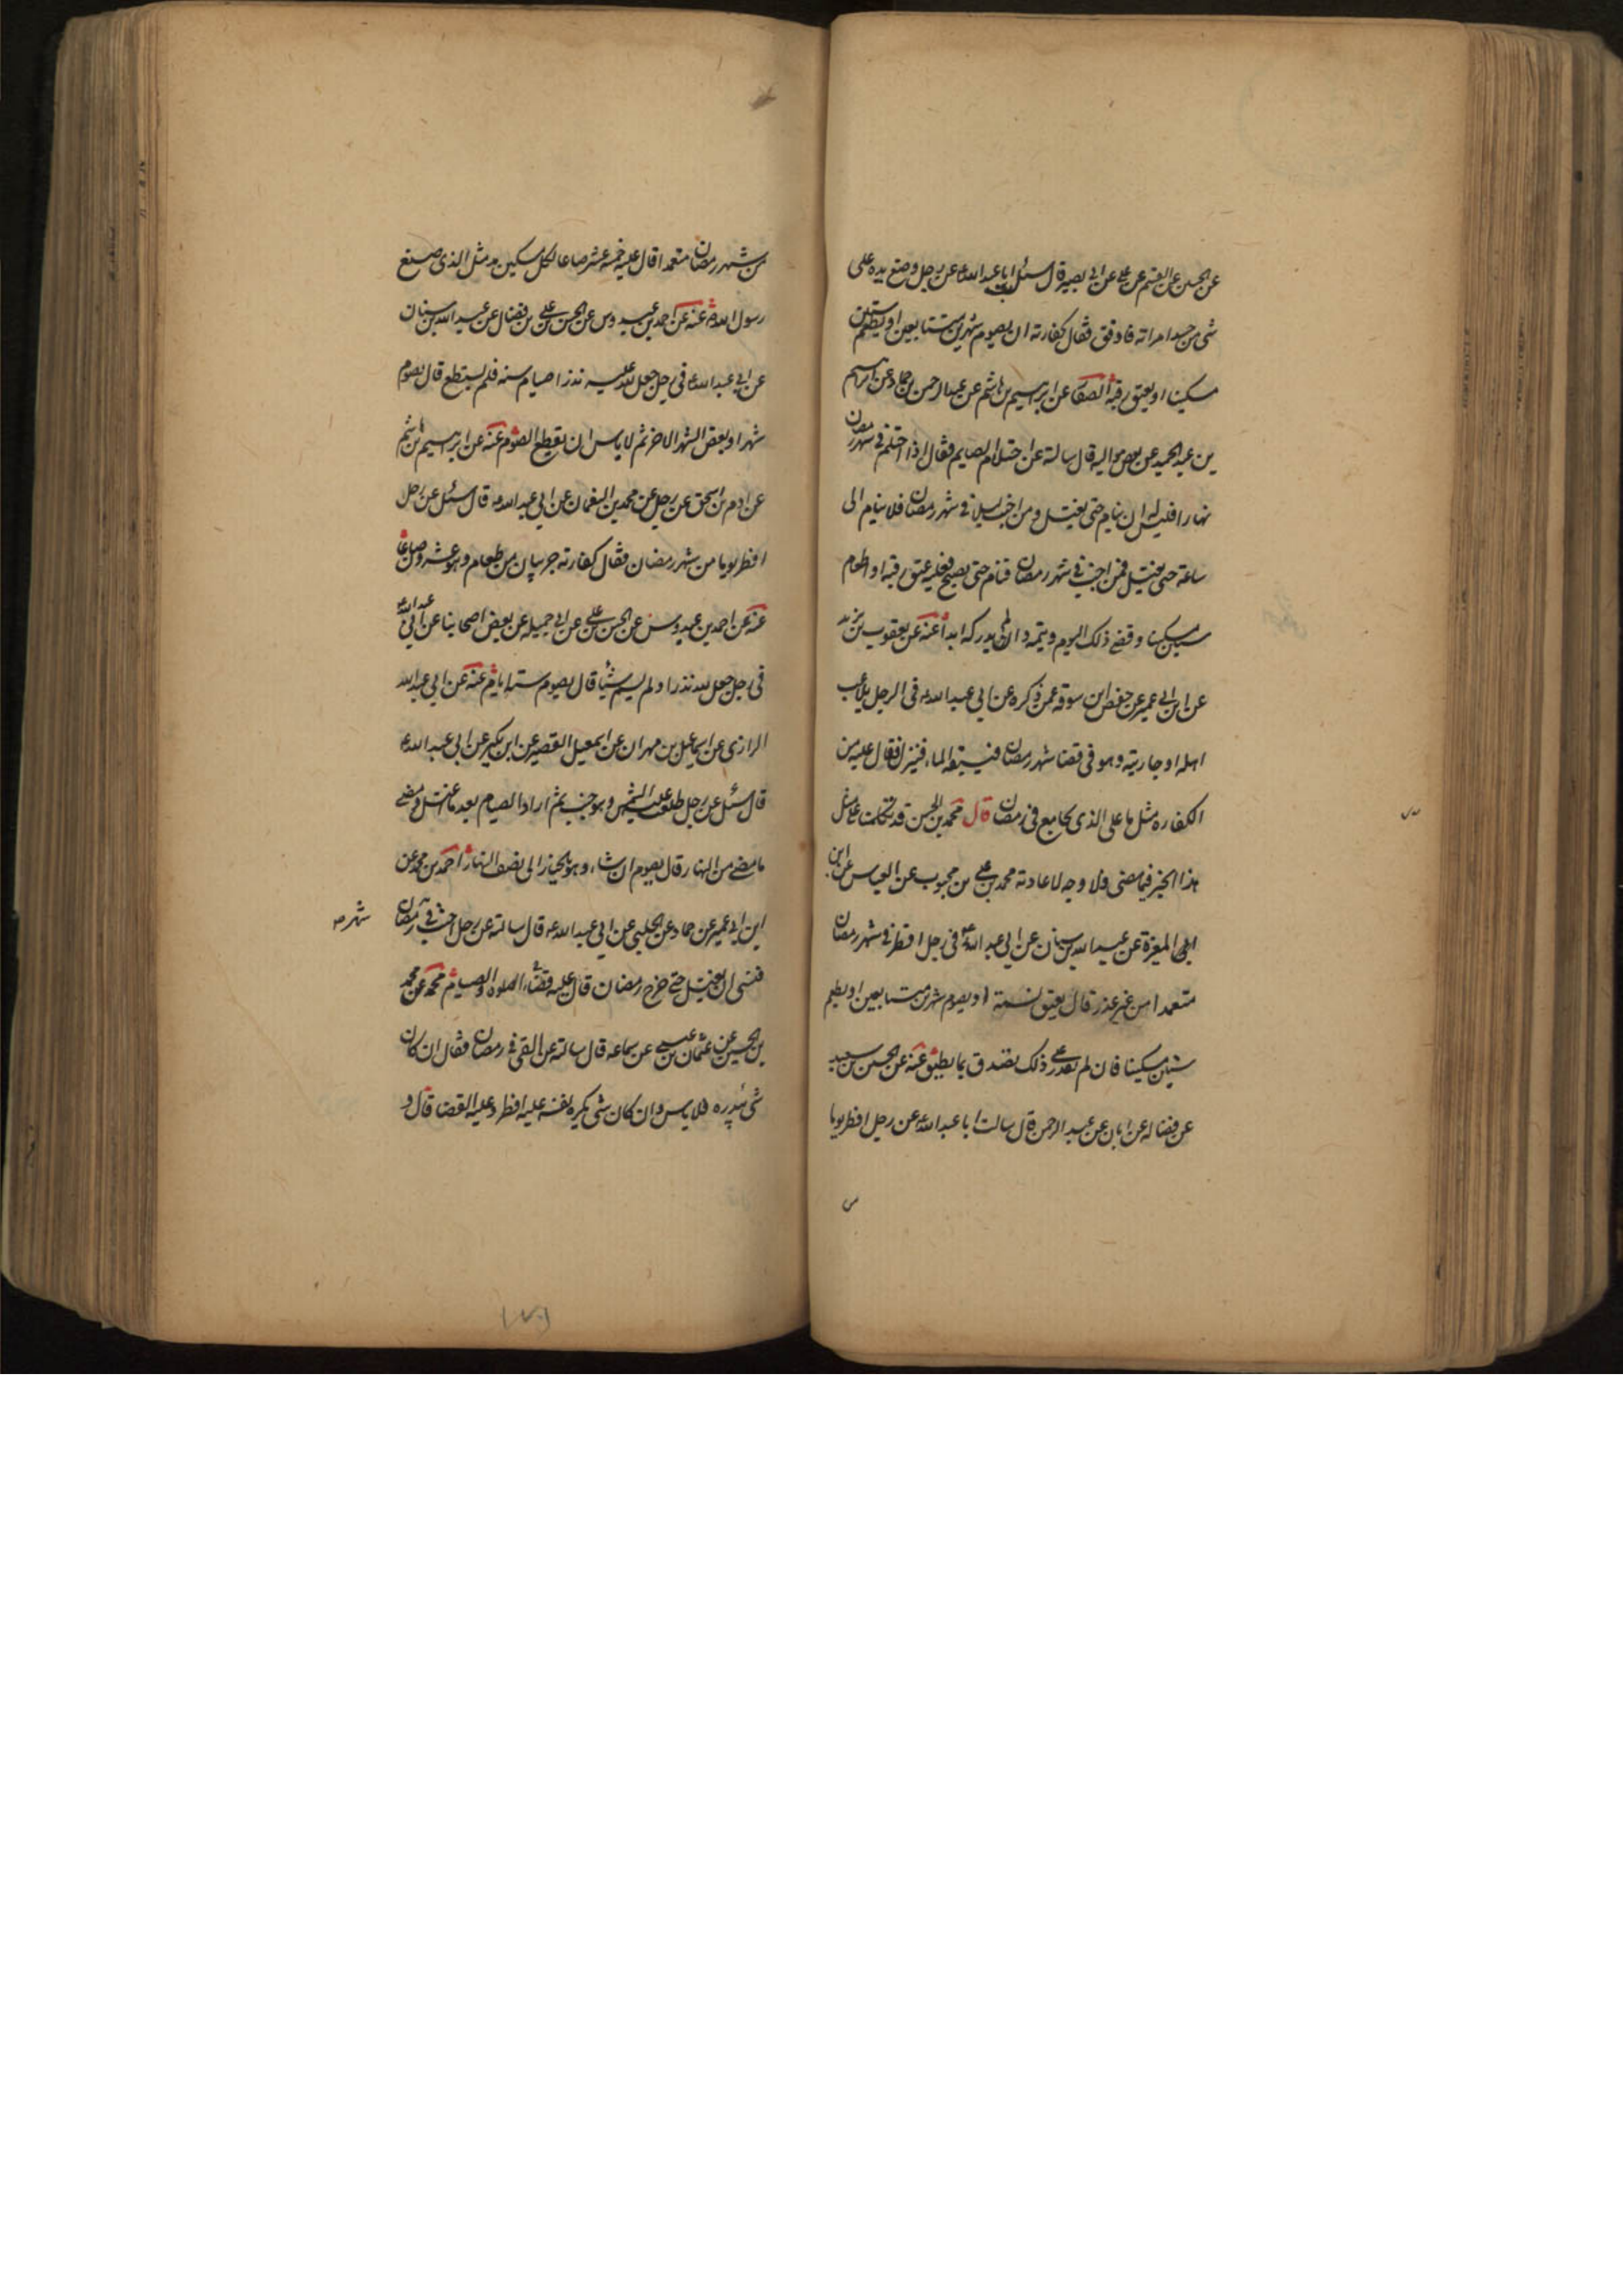 عن الحسين عن القسم عن علي عن ابي بصير قال سئلت ابا عبد الله ع عن رجل وضع يده على
شي من جسد امراته فادفق فقال كفارته ان يصوم شهرين متتابعين او يطعم ستين
مسكينا او يعتق رقبة الصفار عن ابرهيم بن هاشم عن عبد الرحمن بن حماد عن ابرهيم
بن عبد الحميد عن بعض مواليه قال سالته عن احتلام الصايم فقال اذا احتلم في شهر رمضان
نهارا فليس له ان ينام حتى يغتسل ومن اجنب ليلا في شهر رمضان فلا ينام الى
ساعة حتى يغتسل فمن اجنب في شهر رمضان فنام حتى يصبح فعليه عتق رقبة او اطعام
ستين مسكينا وقضى ذلك اليوم ويتمه ولن يدركه ابدا عنه عن يعقوب بن يزيد
عن ابن ابي عمير عن حفص ابن سوقة عمن ذكره عن ابي عبد الله ع في الرجل يلاعب
اهله او جاريته وهو في قضا شهر رمضان فيسبقه الماء فينزل فقال عليه من
الكفاره مثل ما على الذي يجامع في رمضان قال محمد بن الحسن قد تكلمت على مثل
هذا الخبر فيما مضى ولا وجه لاعادته محمد بن علي بن محبوب عن العباس عن ابن
ابي المغيرة عن عبد الله بن سنان عن ابي عبد الله ع في رجل افطر في شهر رمضان
متعمدا من غير عذر قال يعتق نسمة او يصوم شهرين متتابعين او يطعم
ستين مسكينا فان لم يقدر على ذلك تصدق بما يطيق عنه عن الحسين بن سعيد
عن فضاله عن ابان عن عبد الرحمن قال سالت ابا عبد الله ع عن رجل افطر يوما
من شهر رمضان متعمدا قال عليه خمسة عشر صاعا لكل مسكين مد مثل الذي صنع
رسول الله ص عنه عن احمد بن عبدوس عن الحسن بن علي بن فضال عن عبد الله بن سنان
عن ابي عبد الله ع في رجل جعل لله عليه نذرا صيام سنه فلم يستطع قال يصوم
شهرا وبعض الشهر الاخر ثم لا باس ان يقطع الصوم عنه عن ابرهيم بن هاشم
عن ادم بن اسحق عن رجل عن محمد بن النعمان عن ابي عبد الله ع قال سئل عن رجل
افطر يوما من شهر رمضان فقال كفارته جريبان من طعام وهو عشرون صاعا
عنه عن احمد بن عبدوس عن الحسن بن علي عن ابي جميله عن بعض اصحابنا عن ابي عبد الله ع
في رجل جعل لله نذرا ولم يسم شيئا قال يصوم ستة ايام عنه عن ابي عبد الله
الرازي عن اسماعيل بن مهران عن اسمعيل القصير عن ابن بكير عن ابي عبد الله ع
قال سئل عن رجل طلعت عليه الشمس وهو جنب ثم اراد الصيام بعد ما اغتسل ومضى
ما مضى من النهار قال يصوم ان شاء وهو بالخيار الى نصف النهار احمد بن محمد عن
ابن ابي عمير عن حماد عن الحلبي عن ابي عبد الله ع قال سالته عن رجل اجنب في رمضان
شهر صح
فنسى ان يغتسل حتى خرج رمضان قال عليه قضاء الصلوة والصيام محمد عن محمد
بن الحسين عن عثمان بن عيسى عن سماعه قال سالته عن القي في رمضان فقال ان كان
شي يبدره فلا باس وان كان شي يكره نفسه عليه افطر وعليه القضا قال و